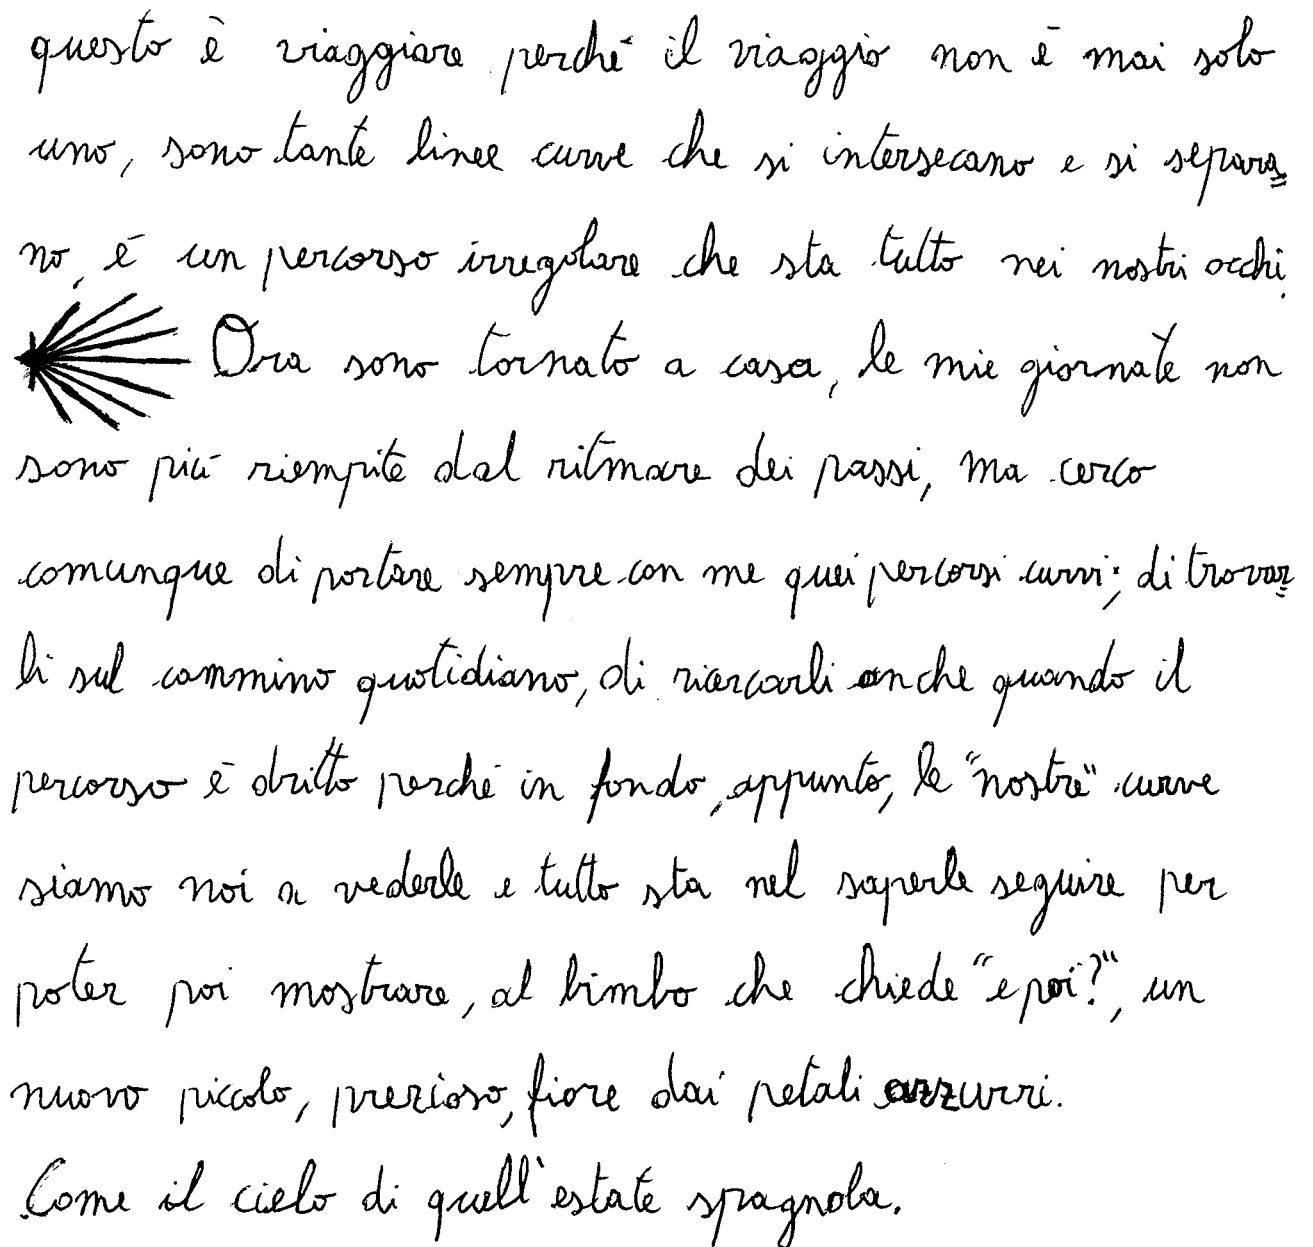 questo è viaggiare perché il viaggio non è mai solo
uno, sono tante linee curve che si intersecano e si separa=
no, è un percorso irregolare che sta tutto nei nostri occhi.
Ora sono tornato a casa, le mie giornate non
sono più riempite dal ritmare dei passi, ma cerco
comunque di portare sempre con me quei percorsi curvi; di trovar=
li sul cammino quotidiano, di ricercarli anche quando il
percorso è dritto perché in fondo, appunto, le "nostre" curve
siamo noi a vederle e tutto sta nel saperle seguire per
poter poi mostrare, al bimbo che chiede "e poi?", un
nuovo piccolo, prezioso, fiore dai petali azzurri.
Come il cielo di quell'estate spagnola.